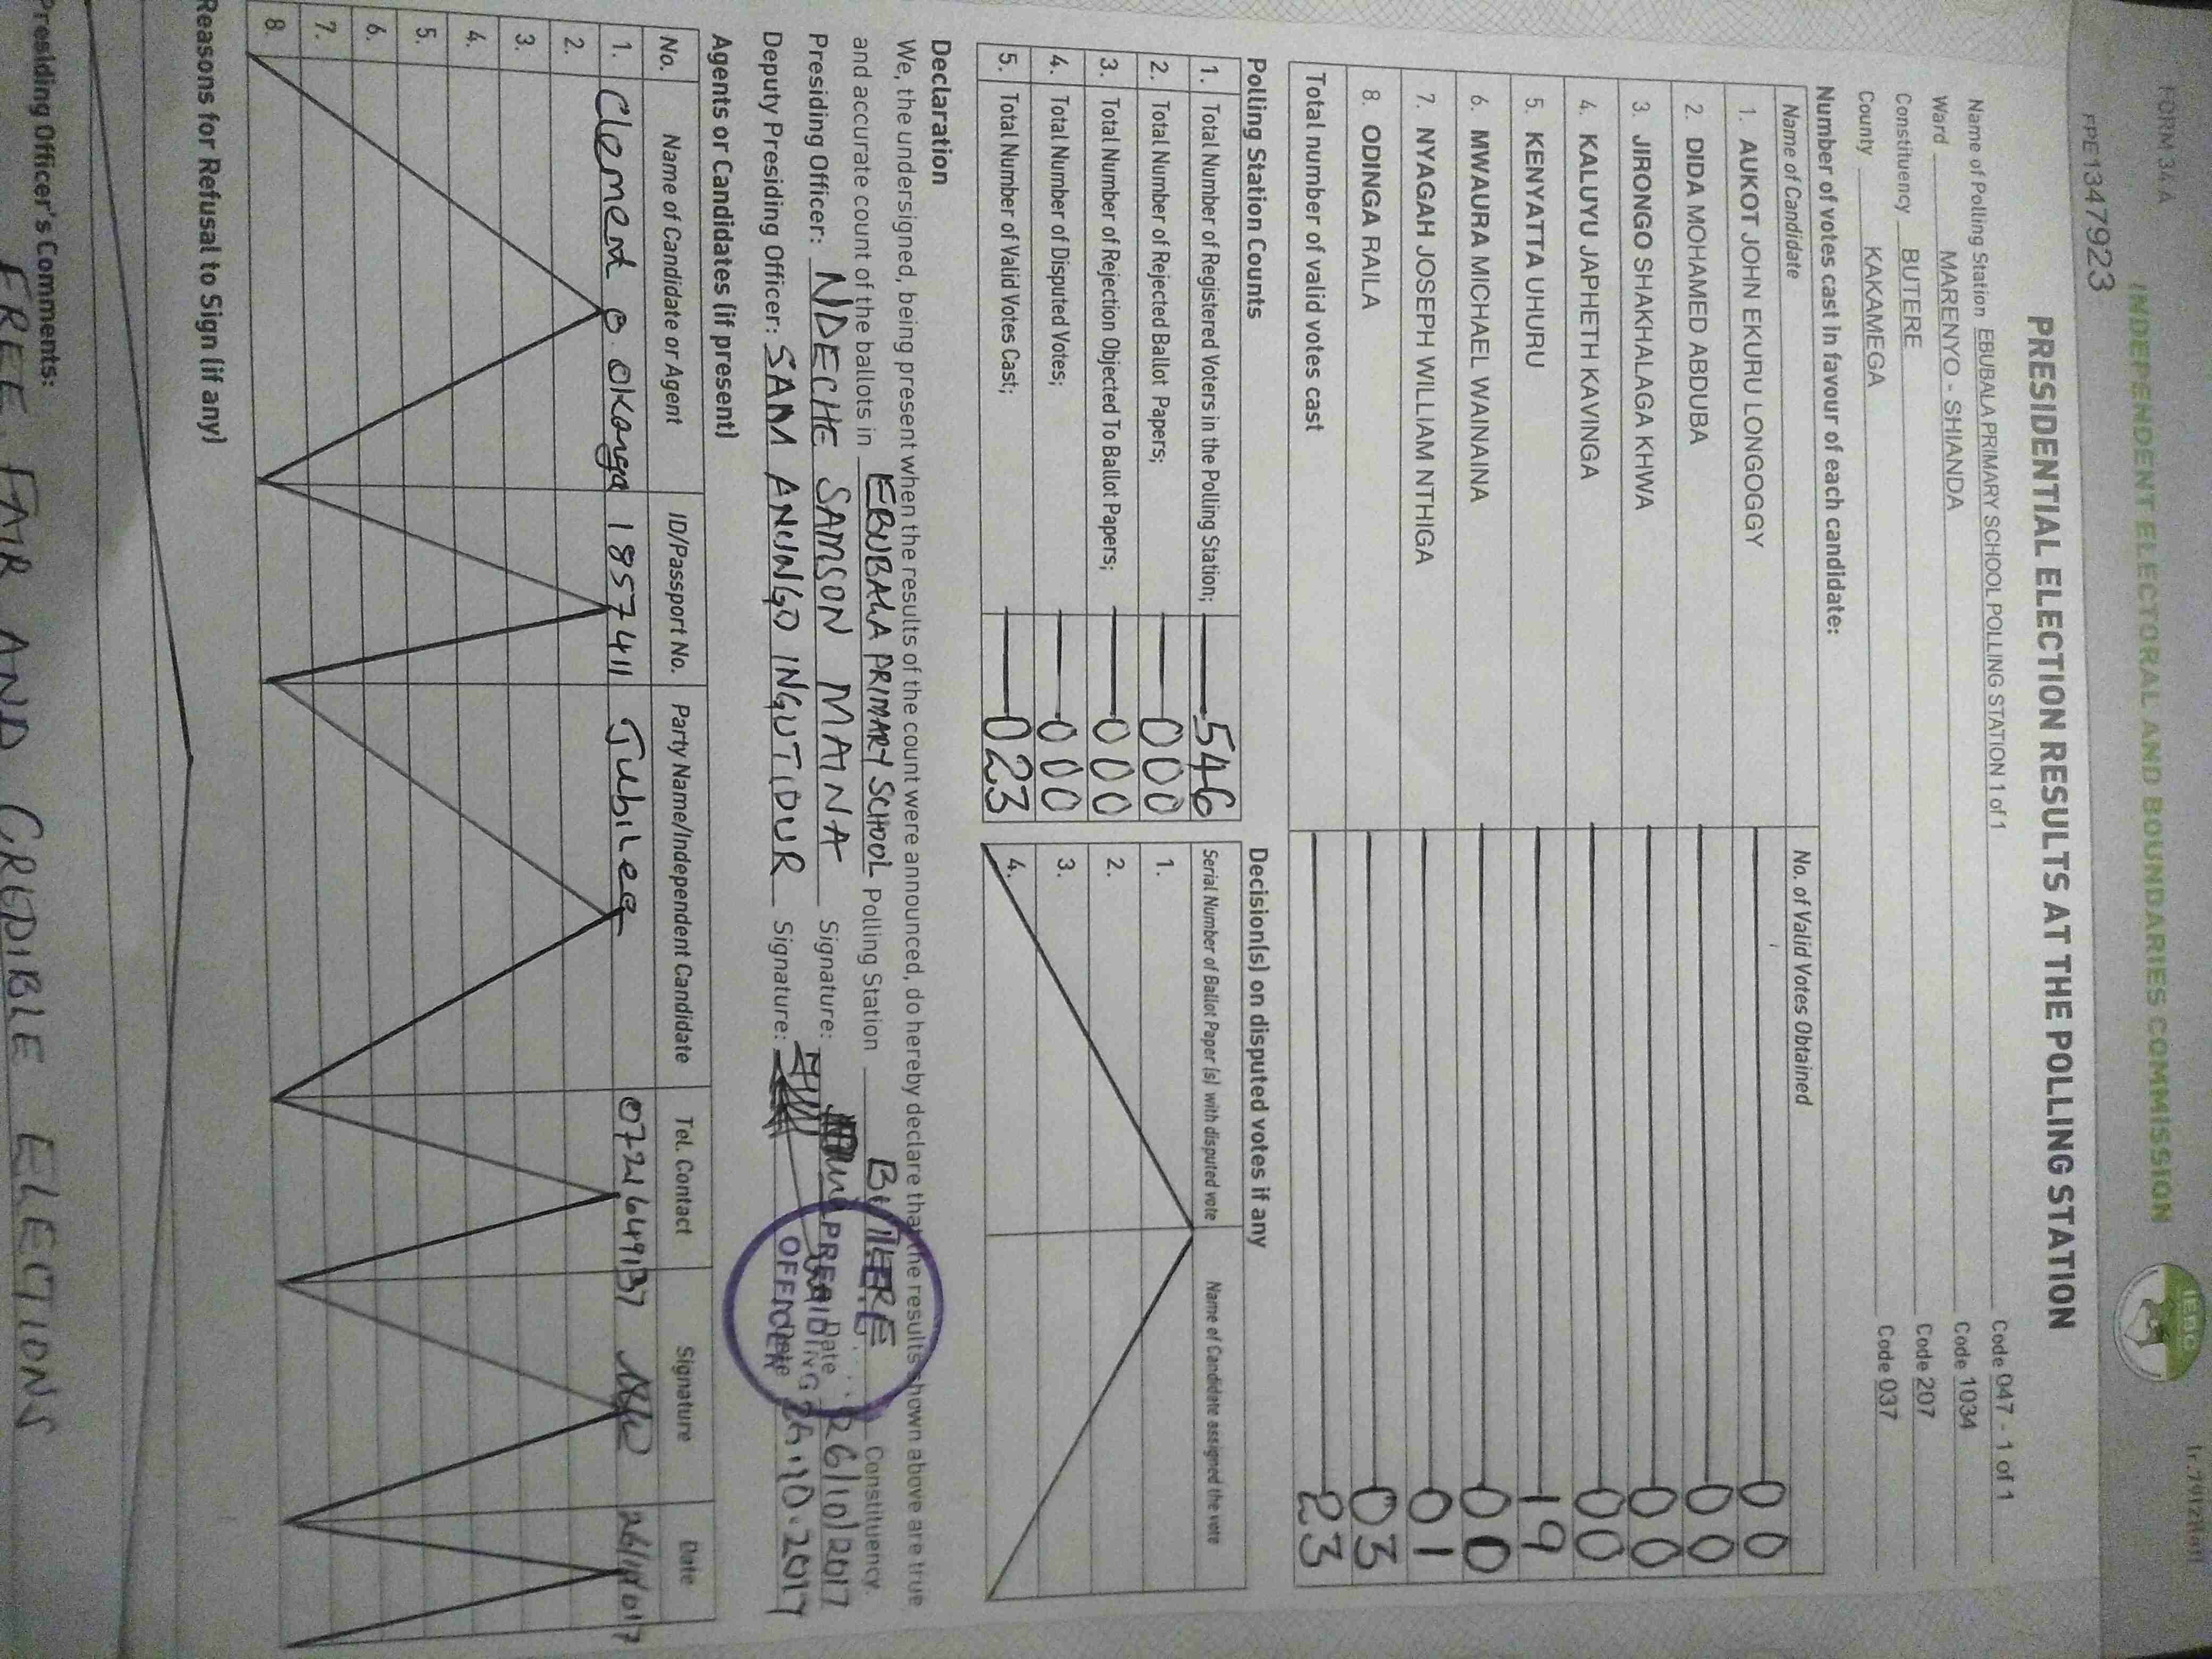 FORM 34A
INDEPENDENT ELECTORAL AND BOUNDARIES COMMISSION
IEBC
FPE1347923
PRESIDENTIAL ELECTION RESULTS AT THE POLLING STATION
Name of Polling Station EBUBALA PRIMARY SCHOOL POLLING STATION 1 of 1 Code 047 - 1 of 1
Ward MARENYO - SHIANDA Code 1034
Constituency BUTERE Code 207
County KAKAMEGA Code 037
Number of votes cast in favour of each candidate:
Name of Candidate No. of Valid Votes Obtained
1. AUKOT JOHN EKURU LONGOGGY 00
2. DIDA MOHAMED ABDUBA 00
3. JIRONGO SHAKHALAGA KHWA 00
4. KALUYU JAPHETH KAVINGA 00
5. KENYATTA UHURU 19
6. MWAURA MICHAEL WAINAINA 00
7. NYAGAH JOSEPH WILLIAM NTHIGA 01
8. ODINGA RAILA 03
Total number of valid votes cast 23
Polling Station Counts
1. Total Number of Registered Voters in the Polling Station; 546
2. Total Number of Rejected Ballot Papers; 000
3. Total Number of Rejection Objected To Ballot Papers; 000
4. Total Number of Disputed Votes; 000
5. Total Number of Valid Votes Cast; 023
Decision(s) on disputed votes if any
Serial Number of Ballot Paper (s) with disputed vote Name of Candidate assigned the vote
1.
2.
3.
4.
Declaration
We, the undersigned, being present when the results of the count were announced, do hereby declare that the results shown above are true
and accurate count of the ballots in EBUBALA PRIMARY SCHOOL Polling Station BUTERE Constituency.
Presiding Officer: NDECHE SAMSON MAINA Signature: Date 26/10/2017
Deputy Presiding Officer: SAM ANUNGO INGUTIDUR Signature: Date 26.10.2017
PRESIDING
OFFICER
Agents or Candidates (if present)
No. Name of Candidate or Agent ID/Passport No. Party Name/Independent Candidate Tel. Contact Signature Date
1. Clement O. Okanga 1857411 Jubilee 0721649137 26/10/2017
2.
3.
4.
5.
6.
7.
8.
Reasons for Refusal to Sign (if any)
Presiding Officer's Comments:
FREE, FAIR AND CREDIBLE ELECTIONS